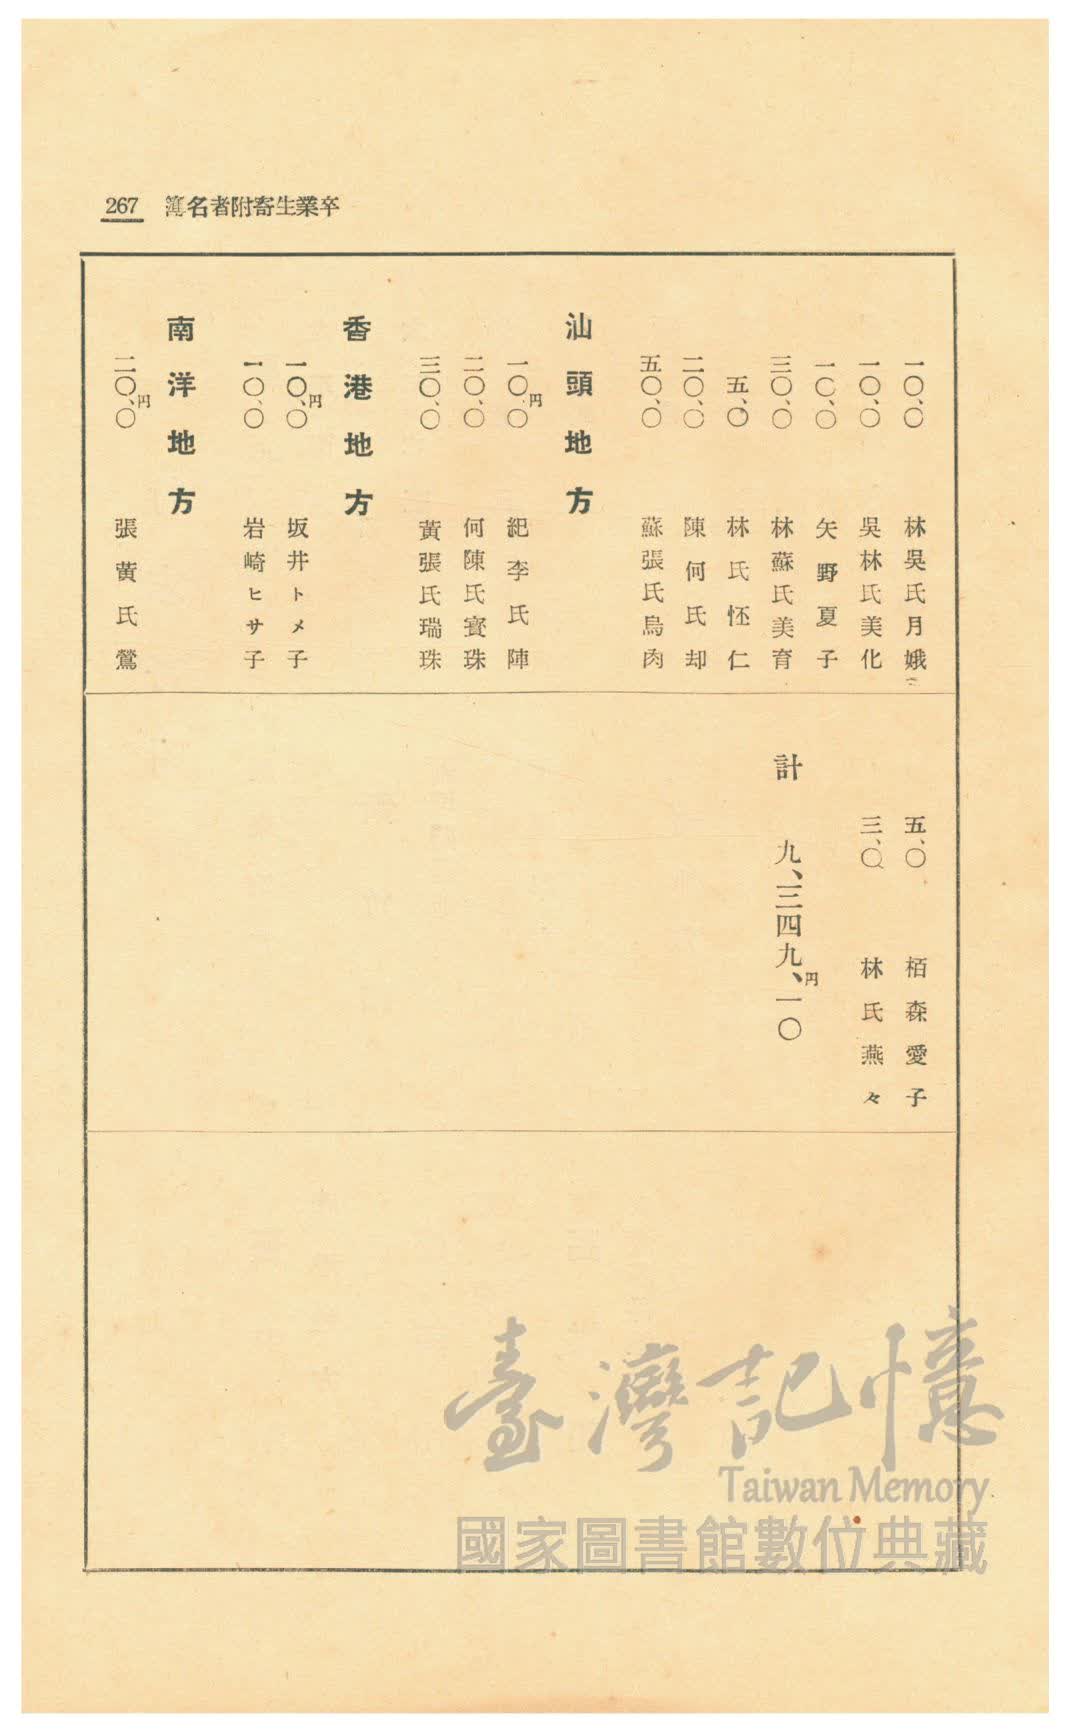 267 卒業生寄附者名簿
一〇、〇 林吳氏月娥
一〇、〇 吳林氏美化
一〇、〇 矢野夏子
三〇、〇 林蘇氏美育
五、〇 林氏怌仁
二〇、〇 陳何氏却
五〇、〇 蘇張氏烏肉
汕頭地方
一〇、〇円 紀李氏陣
二〇、〇 何陳氏寳珠
三〇、〇 黃張氏瑞珠
香港地方
一〇、〇円 坂井トメ子
一〇、〇 岩崎ヒサ子
南洋地方
二〇、〇円 張黃氏鶯
五、〇 栢森愛子
三、〇 林氏燕々
計 九、三四九、一〇円
臺灣記憶
Taiwan Memory
國家圖書館數位典藏